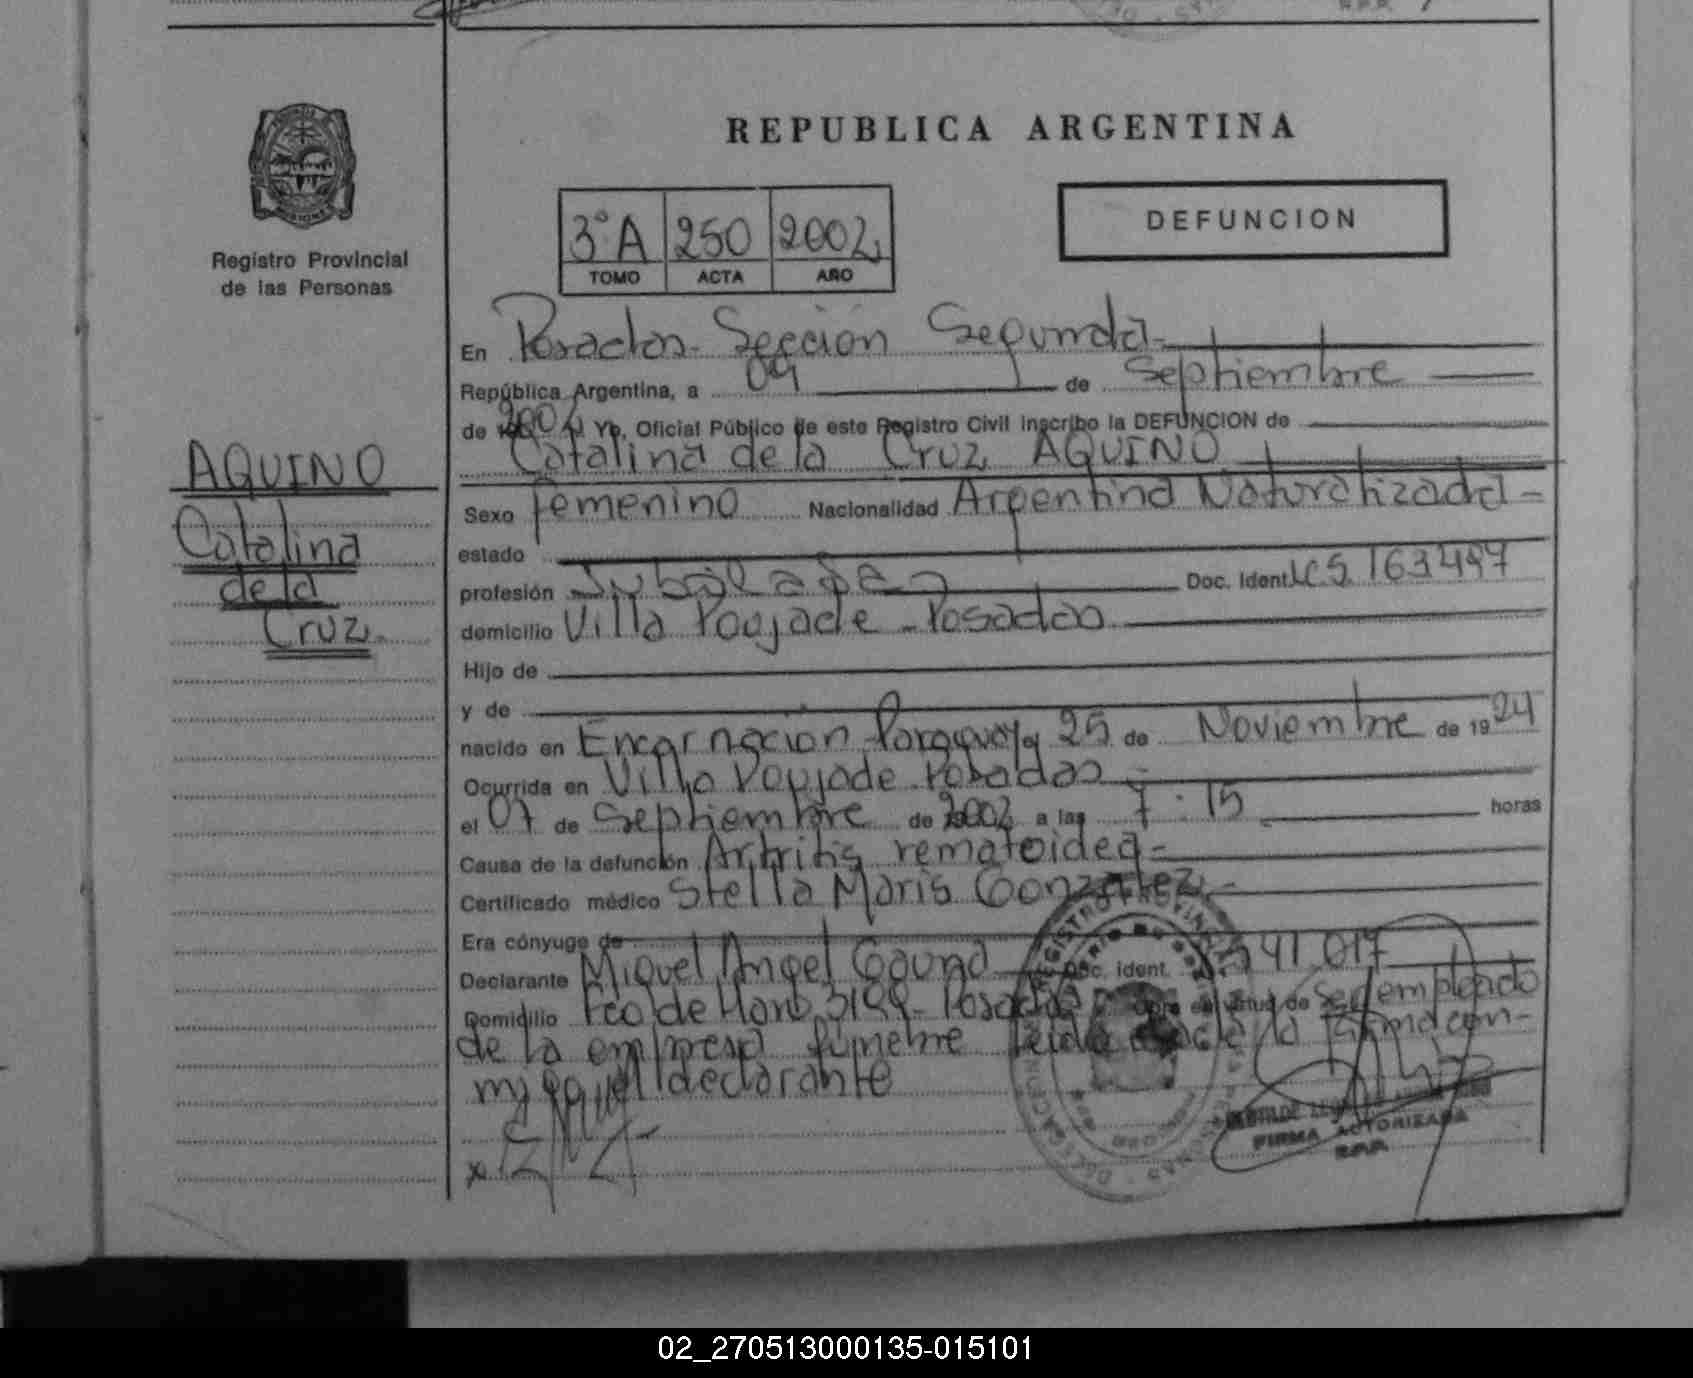 REPUBLICA ARGENTINA
3°A 250 2002
TOMO ACTA AÑO
DEFUNCION
Registro Provincial
de las Personas
En Posadas - Sección Segunda
República Argentina, a 09 de Septiembre
de 2002 Yo, Oficial Público de este Registro Civil inscribo la DEFUNCION de
Catalina de la Cruz AQUINO
AQUINO
Catalina
de la
Cruz
Sexo femenino Nacionalidad Argentina Naturalizada
estado
profesión Jubilada Doc. Ident. LC5.163497
domicilio Villa Poujade - Posadas
Hijo de
y de
nacido en Encarnación Paraguay 25 de Noviembre de 1924
Ocurrida en Villa Poujade Posadas
el 07 de Septiembre de 2002 a las 7:15 horas
Causa de la defunción Artritis rematoidea
Certificado médico Stella Maris Gonzalez
Era cónyuge de
Declarante Miguel Angel Doc. ident. 541.017
Domicilio Posadas obra en virtud de Ser empleado
de la empresa fúnebre leida acta la firma con-
migo el declarante
FIRMA AUTORIZADA
R.P.P.
02_270513000135-015101